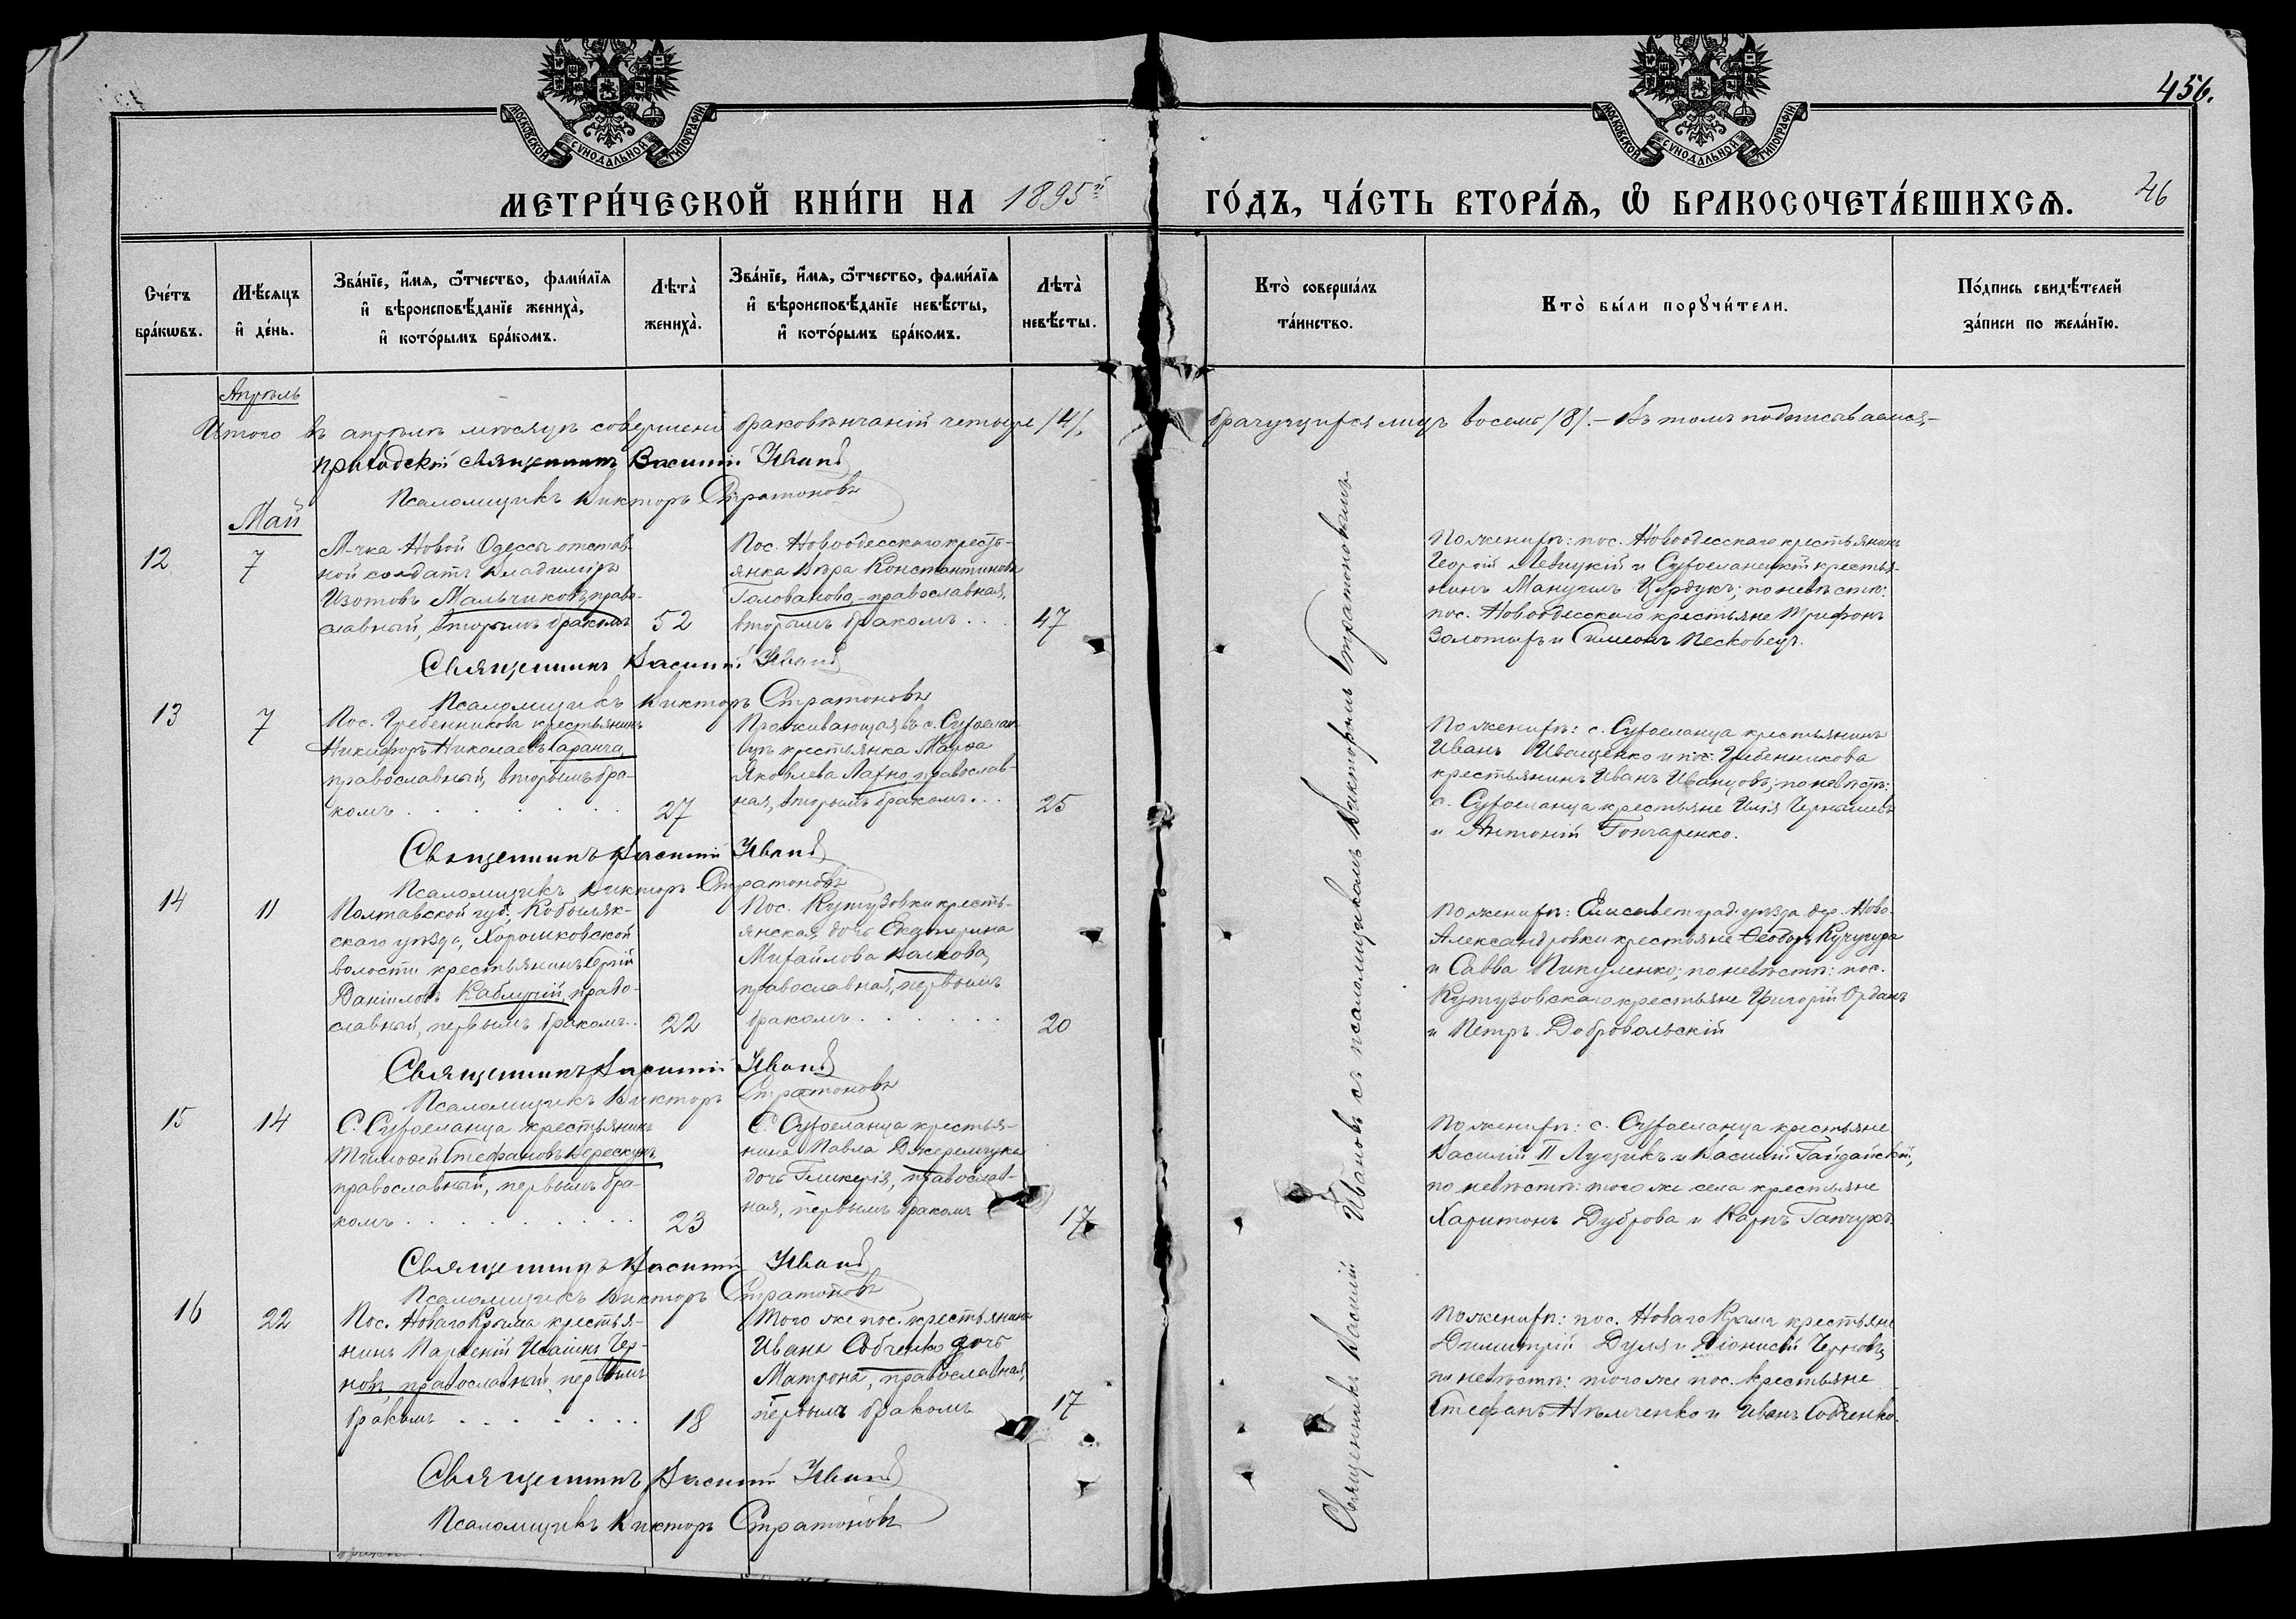 МОСКОВСКОЙ СѴНОДАЛЬНОЙ ТИПОГРАФІИ
МОСКОВСКОЙ СѴНОДАЛЬНОЙ ТИПОГРАФІИ
456.
МЕТРИ́ЧЕСКОЙ КНИ́ГИ НА 1895й ГО́ДЪ, ЧА́СТЬ ВТОРА́Ѧ, Ѽ БРАКОСОЧЕТА́ВШИХСѦ. 46
Сче́тъ бра́кωвъ.
Мѣ́сѧцъ и҆ де́нь.
Зва́нїе, и҆́мѧ, ѻ҆́тчество, фами́лїѧ
и҆ вѣроисповѣ́данїе жениха̀,
и҆ кото́рымъ бра́комъ.
Лѣта̀ жениха̀.
Зва́нїе, и҆́мѧ, ѻ҆́тчество, фами́лїѧ
и҆ вѣроисповѣ́данїе невѣ́сты,
и҆ кото́рымъ бра́комъ.
Лѣта̀ невѣ́сты.
Кто̀ соверша́лъ та́инство.
Кто̀ бы́ли порꙋчи́тели.
По́дпись свидѣ́телей
за́писи по жела́нїю.
Апрѣль
Итого въ апрѣлѣ мѣсяцѣ совершено браковѣнчаній четыре /4/, брачущихся лицъ восемь /8/. – Въ томъ подписываемся –
Приходскій священникъ Василій Ивановъ
Псаломщикъ Викторъ Стратоновъ
Май
12
7
М-чка Новой Одессы отстав-
ной солдатъ Владиміръ
Изотовъ Мальчиковъ, право-
славный, вторымъ бракомъ
52
Пос. Новоодесскаго кресть-
янка Вѣра Константинова
Голованова, – православная,
вторымъ бракомъ . . .
47
По женихѣ: пос. Новоодесскаго крестьянинъ
Георгій Левицкій и Сухоеланецкій крестья-
нинъ Мануилъ ; по невѣстѣ:
пос. Новоодесскаго крестьяне Трифонъ
Золотыхъ и Симеонъ Песковец.
Священникъ Василій Ивановъ
Псаломщикъ Викторъ Стратоновъ
13
7
Пос. Гребенникова крестьянинъ
Никифоръ Николаевъ Гаранча,
православный, вторымъ бра-
комъ . . . . . .
27
Проживающая въ с. Сухоелан-
цѣ крестьянка Марѳа
Яковлева Лахно, православ-
ная, вторымъ бракомъ. . .
25
По женихѣ: с. Сухоеланца крестьянинъ
Иванъ Иващенко и пос. Гребенникова
крестьянинъ Иванъ Иванцовъ; по невѣстѣ:
с. Сухоеланца крестьяне Илія Чернышевъ
и Антоній Гончаренко.
Священникъ Василій Ивановъ
Псаломщикъ Викторъ Стратоновъ
14
11
Полтавской губ., Кобыляк-
скаго уѣзда, Хорошковской
волости крестьянинъ Сергій
Даніиловъ Каблучій, право-
славный, первымъ бракомъ . .
22
Пос. Кутузовки кресть-
янская дочь Екатерина
Михайлова Волкова,
православная, первымъ
бракомъ . . . . . .
20
По женихѣ: Елисаветград. уѣзда дер. Ново-
Александровки крестьяне Ѳеодоръ Кучугура
и Савва Пикуленко; по невѣстѣ: пос.
Кутузовскаго крестьяне Григорій Орданъ
и Петръ Добровольскій
Священникъ Василій Ивановъ
Псаломщикъ Викторъ Стратоновъ
15
14
С. Сухоеланца крестьянинъ
Тимоѳей Стефановъ Верескунъ
православный, первымъ бра-
комъ . . . . . . . .
23
С. Сухоеланца крестья-
нина Павла Джеремчука
дочь Гликерія, православ-
ная, первымъ бракомъ
17
По женихѣ: с. Сухоеланца крестьяне
Василій II Луцикъ и Василій Гайдайскій,
по невѣстѣ: того же села крестьяне
Харитонъ Дуброва и Карпъ Ганчукъ.
Священникъ Василій Ивановъ
Псаломщикъ Викторъ Стратоновъ
16
22
Пос. Новаго Крыма крестья-
нинъ Парѳеній Исаіинъ Чер-
новъ, православный, первымъ
бракомъ . . . . . . .
18
Того же пос. крестьянина
Ивана Собченко дочь
Матрона, православная,
первымъ бракомъ
17
По женихѣ: пос. Новаго Крыма крестьяне
Димитрій Дуля и Діонисій Черновъ,
по невѣстѣ: того же пос. крестьяне
Стефанъ Нѣмченко и Иванъ Собченко.
Священникъ Василій Ивановъ
Псаломщикъ Викторъ Стратоновъ
Священникъ Василій Ивановъ съ псаломщикомъ Викторомъ Стратоновымъ.